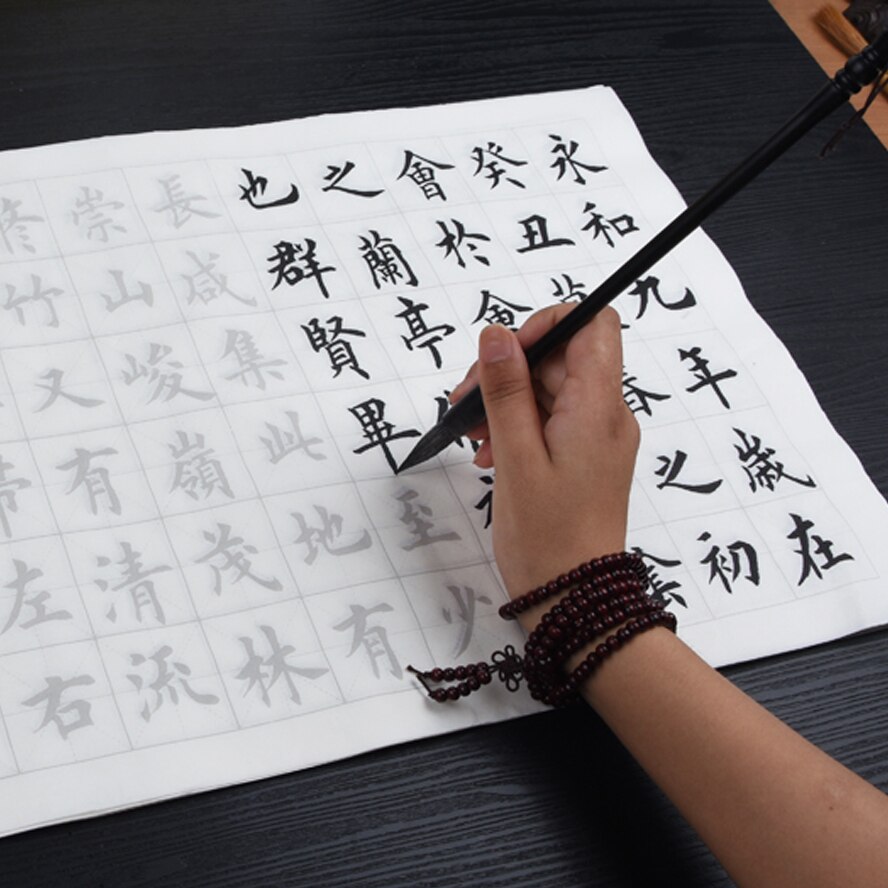 永和九年歲在
癸丑春之初
會於會
之蘭亭
也群賢畢至少
長咸集此地有
崇山峻嶺茂林
修竹又有清流
帶左右